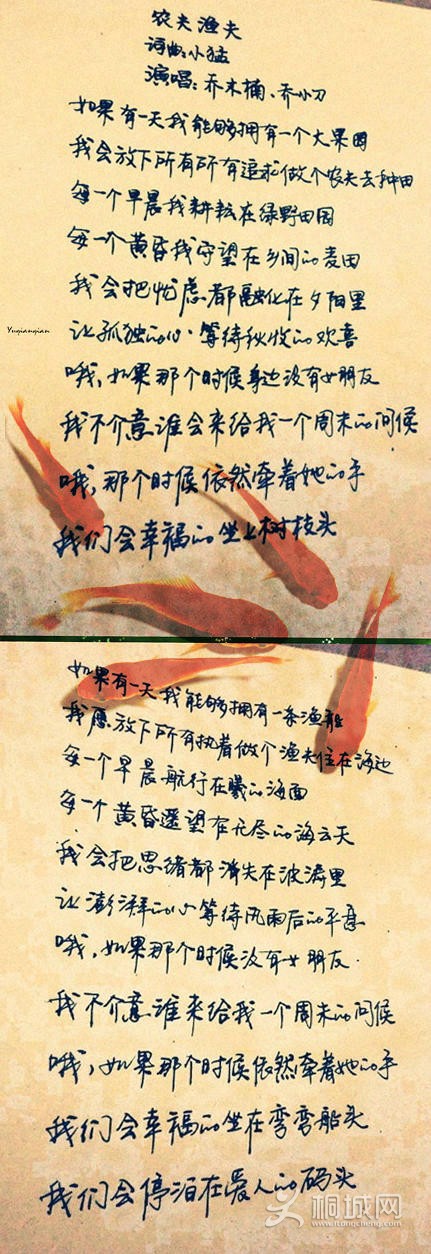 农夫渔夫
词曲:小猛
演唱:乔木楠、乔小刀
如果有一天我能够拥有一个大果园
我会放下所有所有追求做个农夫去种田
每一个早晨我耕耘在绿野田园
每一个黄昏我守望在乡间的麦田
我会把忧虑都融化在夕阳里
Yuqianqian
让孤独的心等待秋收的欢喜
哦,如果那个时候身边没有女朋友
我不介意谁会来给我一个周末的问候
哦,那个时候依然牵着她的手
我们会幸福的坐上树枝头
如果有一天我能够拥有一条渔船
我愿放下所有执着做个渔夫住在海边
每一个早晨航行在曦的海面
每一个黄昏遥望在无尽的海云天
我会把思绪都消失在波涛里
让澎湃的心等待风雨后的平息
哦,如果那个时候没有女朋友
我不介意谁来给我一个周末的问候
哦,如果那个时候依然牵着她的手
我们会幸福的坐在弯弯船头
我们会停泊在爱人的码头
桐城网
www.tongcheng.com